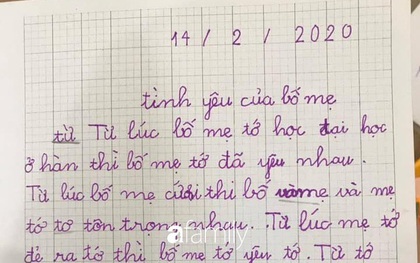 14 / 2 / 2020
tình yêu của bố mẹ
từ Từ lúc bố mẹ tớ học đại học
ở hàn thì bố mẹ tớ đã yêu nhau.
Từ lúc bố mẹ cưới thì bố và mẹ
tớ tơ tôn trọng nhau. Từ lúc mẹ tớ
đẻ ra tớ thì bố mẹ tớ yêu tớ. Từ tớ
afamily